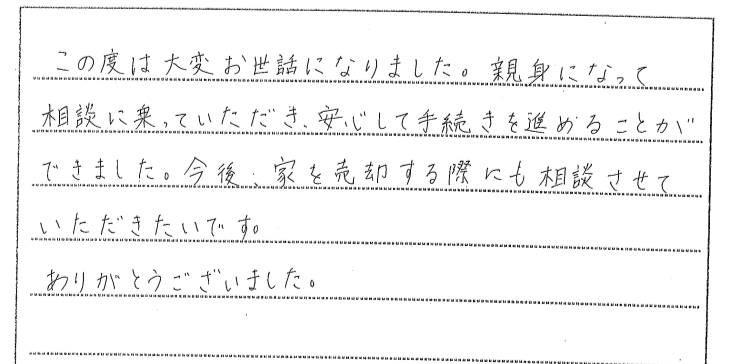 この度は大変お世話になりました。親身になって
相談に乗っていただき、安心して手続きを進めることが
できました。今後、家を売却する際にも相談させて
いただきたいです。
ありがとうございました。